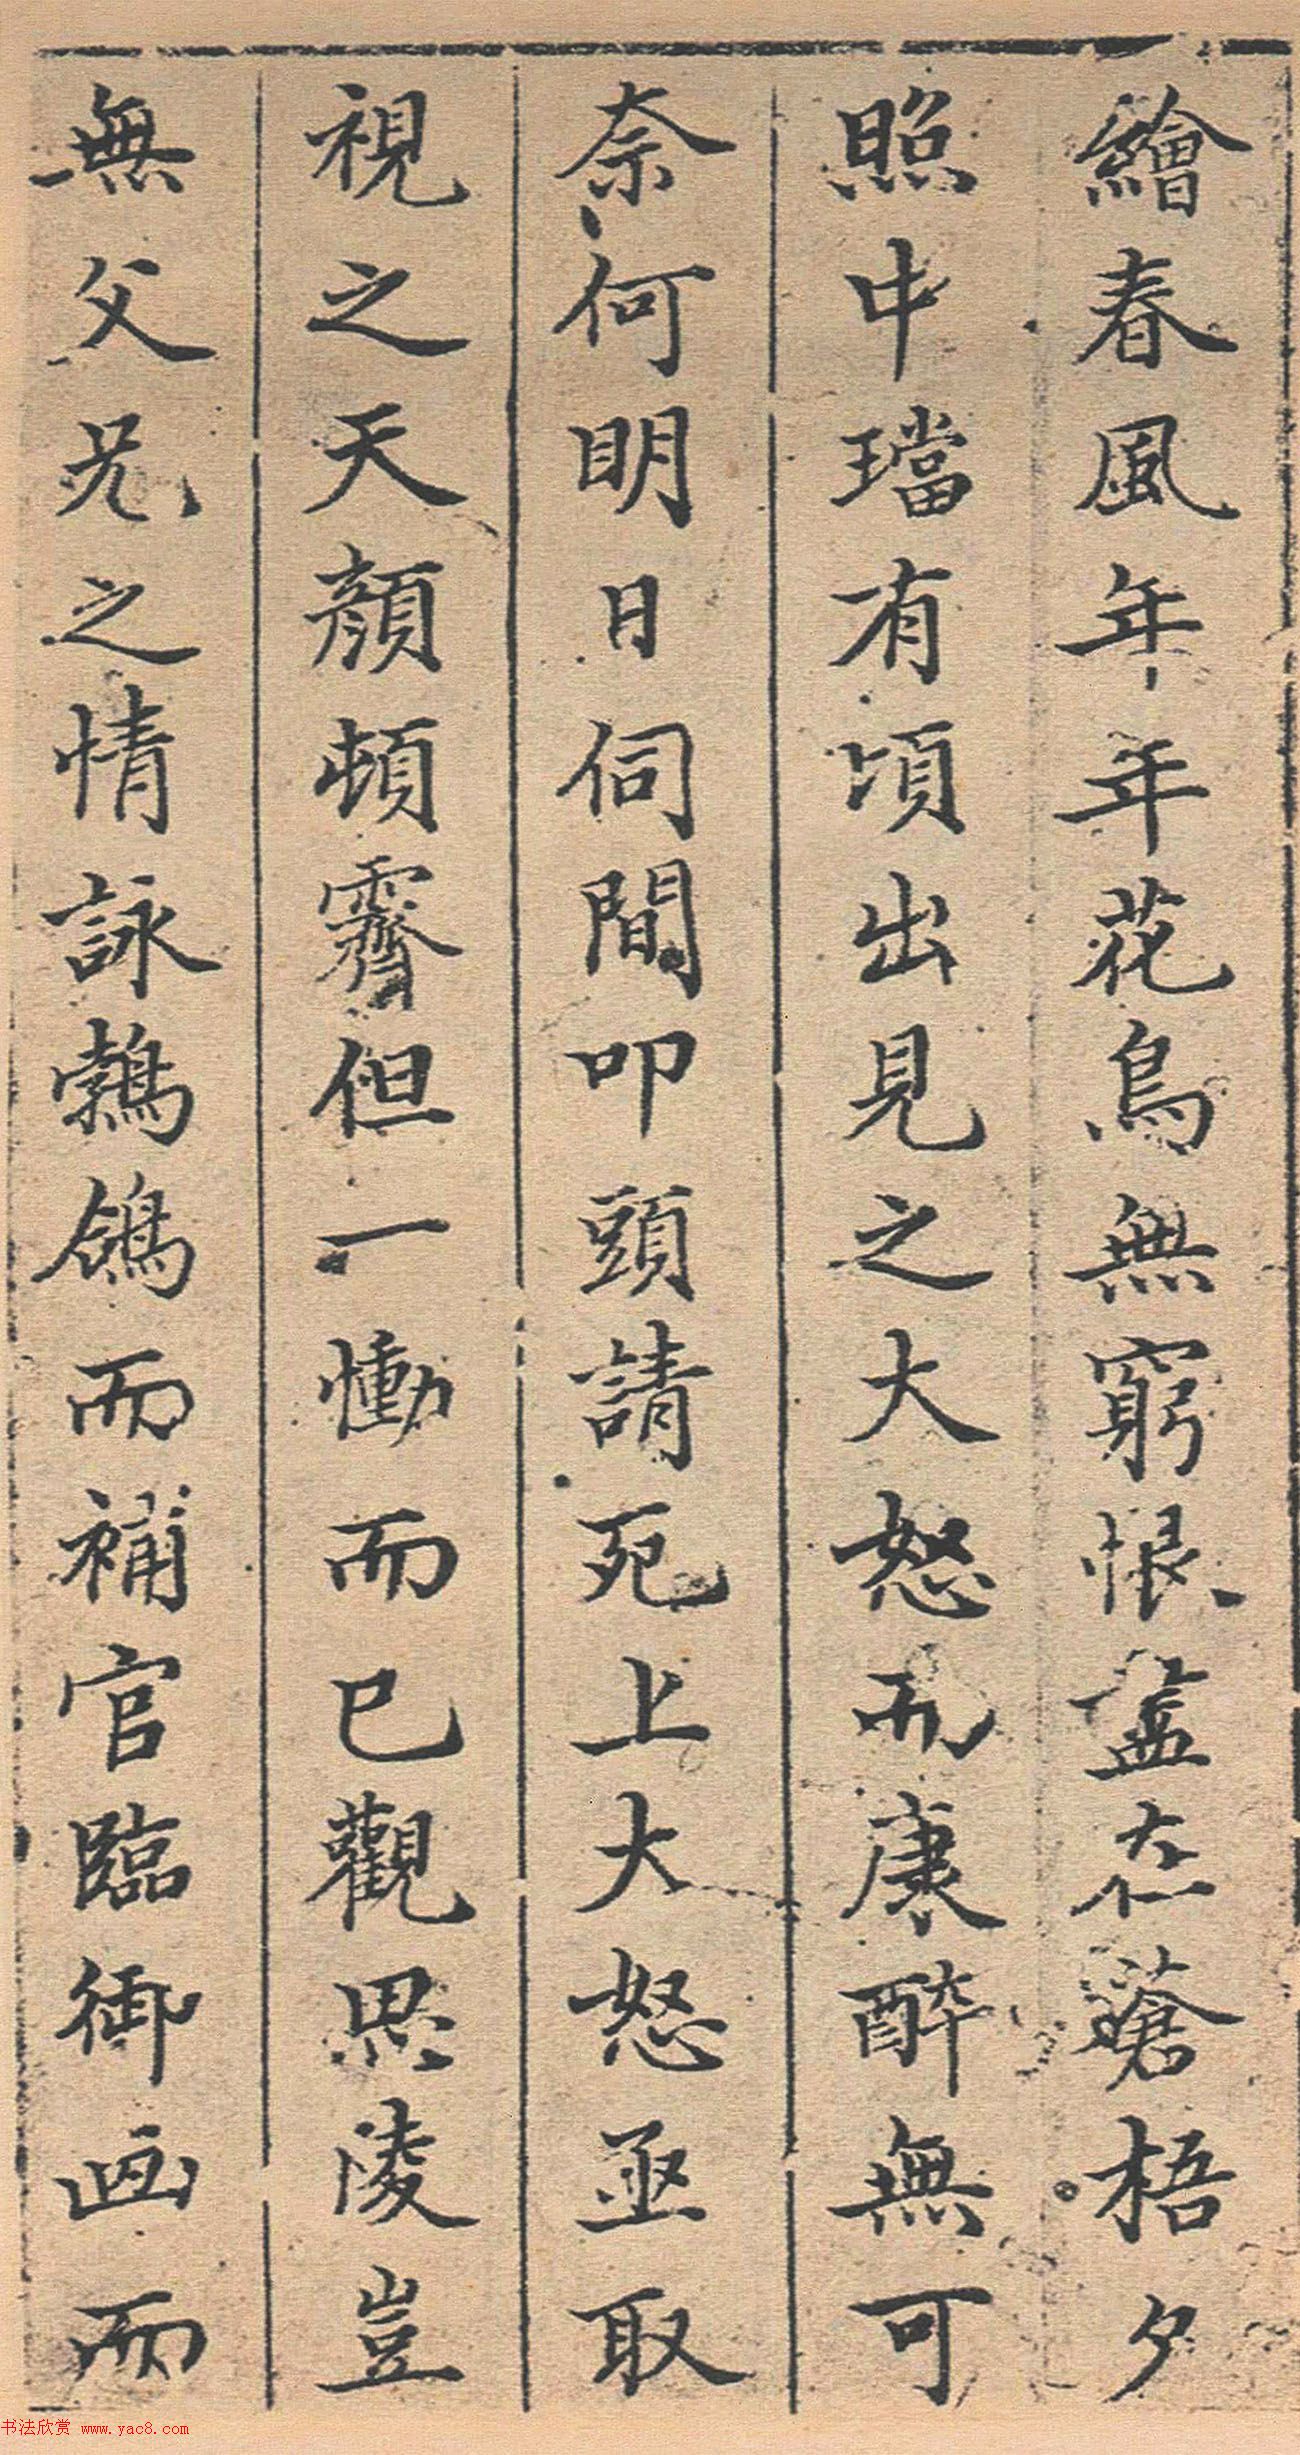 繪春風年年花鳥無窮恨盡在蒼梧夕
照中璫有頃出見之大怒而康醉無可
奈何明日伺間叩頭請死上大怒亟取
視之天顏頓霽但一慟而已觀思陵豈
無父兄之情詠鶺鴒而補官臨御画而
书法欣赏 www.yac8.com